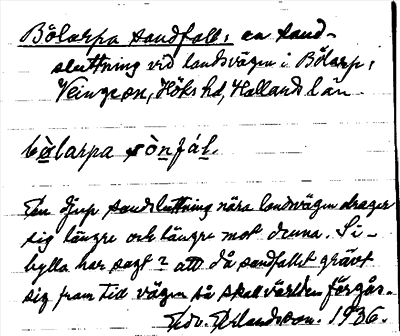 Bölarpa sandfall: en sand-
sluttning vid landsvägen i Bölarp,
Veinge sn, Höks hd, Hallands län.
bölarpa sònfál.
En djup sandsluttning nära landsvägen drager
sig längre och längre mot denna. Si-
bylla har sagt? att då sandfallet grävt
sig fram till vägen så skall världen förgås.
Edv. Erlandsson. 1936.